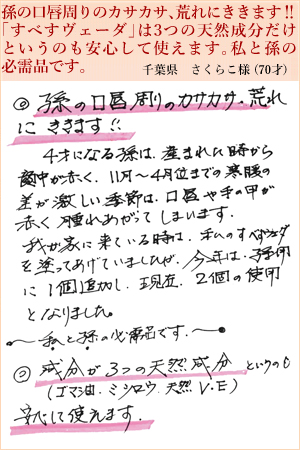 孫の口唇周りのカサカサ、荒れにききます!!
「すべすヴェーダ」は3つの天然成分だけ
というのも安心して使えます。私と孫の
必需品です。
千葉県 さくらこ様（70才）
◎ 孫の口唇周りのカサカサ・荒れ
に ききます!!
4才になる孫は、産まれた時から
歯中が赤く、11月〜4月位までの寒暖の
差が激しい季節は、口唇や手の甲が
赤く腫れあがってしまいます。
我が家に来ている時は、私のすべすヴェーダ
を塗ってあげていましたが、今年は、孫用
に1個追加し、現在、2個の使用
となりました。
〜私と孫の必需品です.〜
◎ 成分が3つの天然成分 というのも
（ゴマ油．ミシロウ．天然V.E）
安心して使えます.